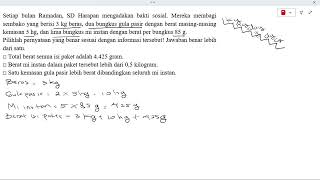 Setiap bulan Ramadan, SD Harapan mengadakan bakti sosial. Mereka membagi
sembako yang berisi 3 kg beras, dua bungkus gula pasir dengan berat masing-masing
kemasan 5 hg, dan lima bungkus mi instan dengan berat per bungkus 85 g.
Pilihlah pernyataan yang benar sesuai dengan informasi tersebut! Jawaban benar lebih
dari satu.
□ Total berat semua isi paket adalah 4.425 gram.
□ Berat mi instan dalam paket tersebut lebih dari 0,5 kilogram.
□ Satu kemasan gula pasir lebih berat dibandingkan seluruh mi instan.
Beras = 3 kg
Gula pasir = 2 x 5 hg = 10 hg
Mi instan = 5 x 85 g = 425 g
Berat isi paket = 3 kg + 10 hg + 425 g